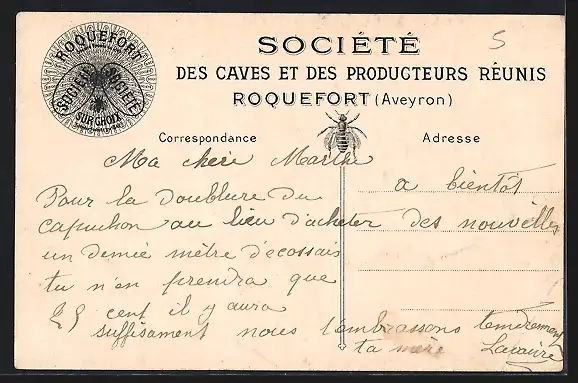 ROQUEFORT
SOCIÉTÉ SOCIÉTÉ
SURCHOIX
5
SOCIÉTÉ
DES CAVES ET DES PRODUCTEURS RÉUNIS
ROQUEFORT (Aveyron)
Correspondance
Adresse
Ma chère Marthe
Pour la doublure du
capuchon au lieu d'acheter
un demie mètre d'ecossais
tu n'en prendra que
cent il y aura
suffisament nous t'embrassons tendrement
a bientôt
des nouvelles
ta mère